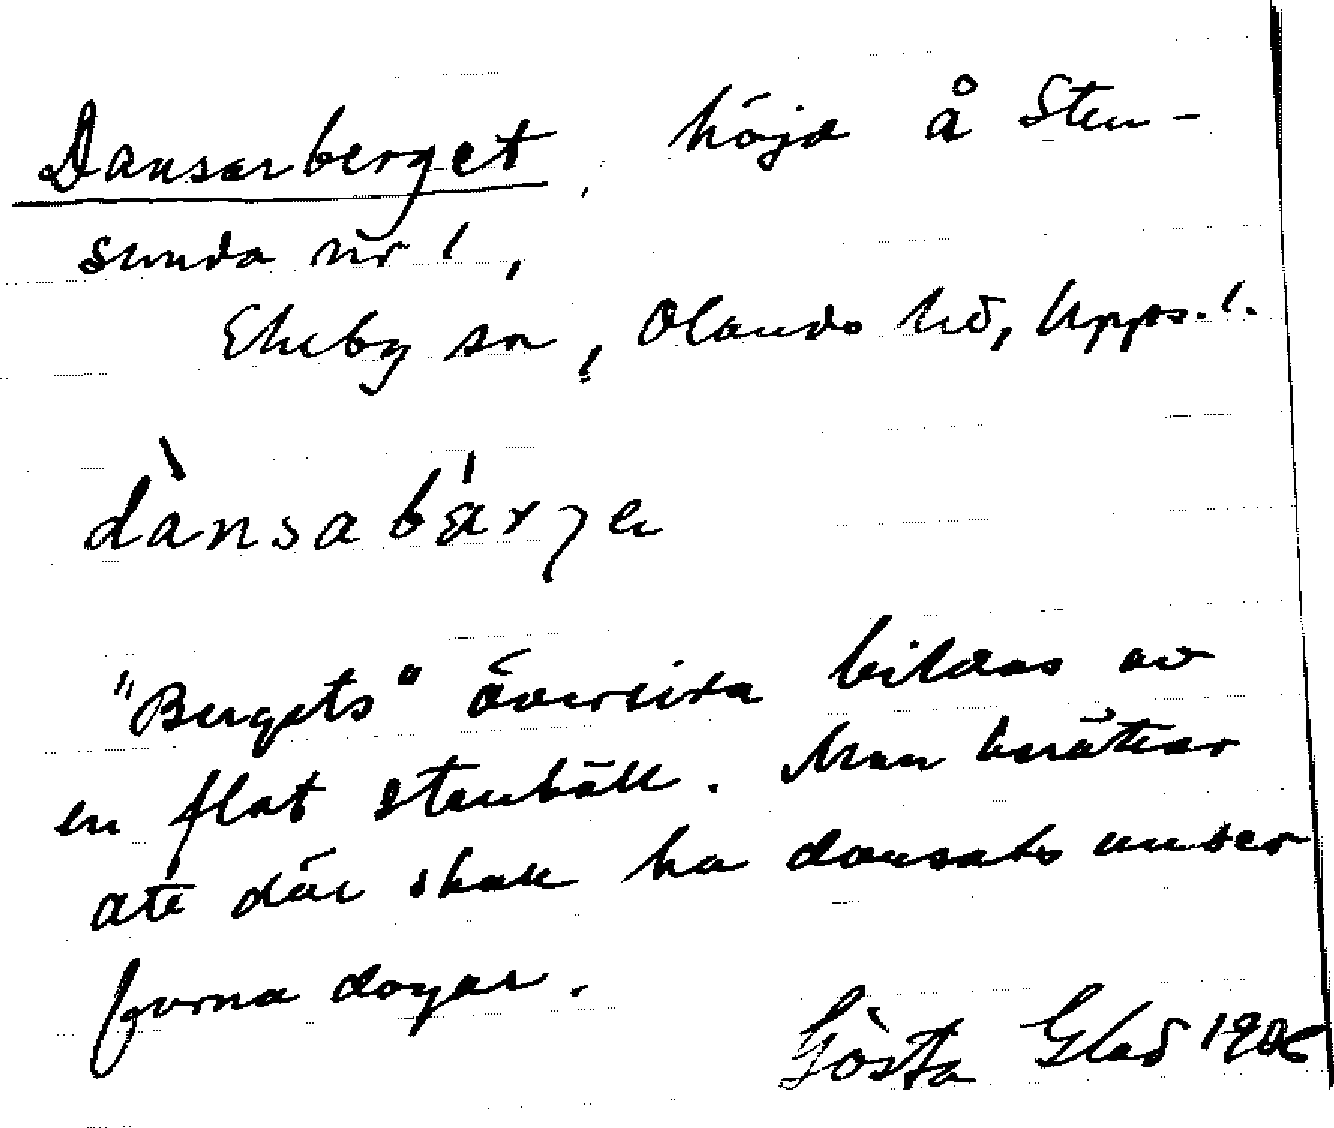 Dansarberget, höjd å Sten-
sunda nr 1,
Ekeby sn, Olands hd, Upps. l.
dànsabä́rʒe
"Bergets" översida bildas av
en flat stenhäll. Man berättar
att där skall ha dansats under
forna dagar.
Gösta Glad